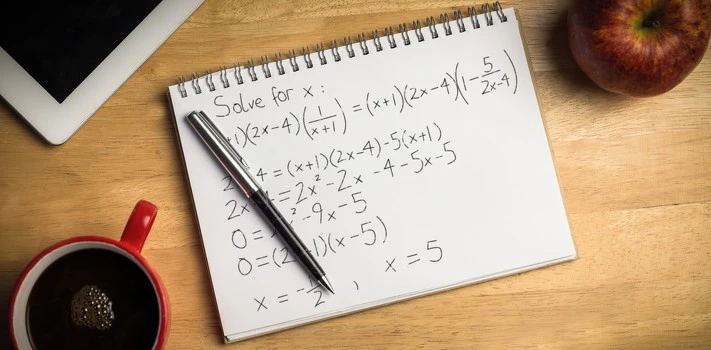 Solve for x:
+1)(2x-4)(1/(x+1)) = (x+1)(2x-4)(1-5/(2x-4))
2 4 = (x+1)(2x-4)-5(x+1)
2x = 2x²-2x-4-5x-5
0 = ²-9x-5
0 = (2 +1)(x-5)
x = -1/2 , x = 5